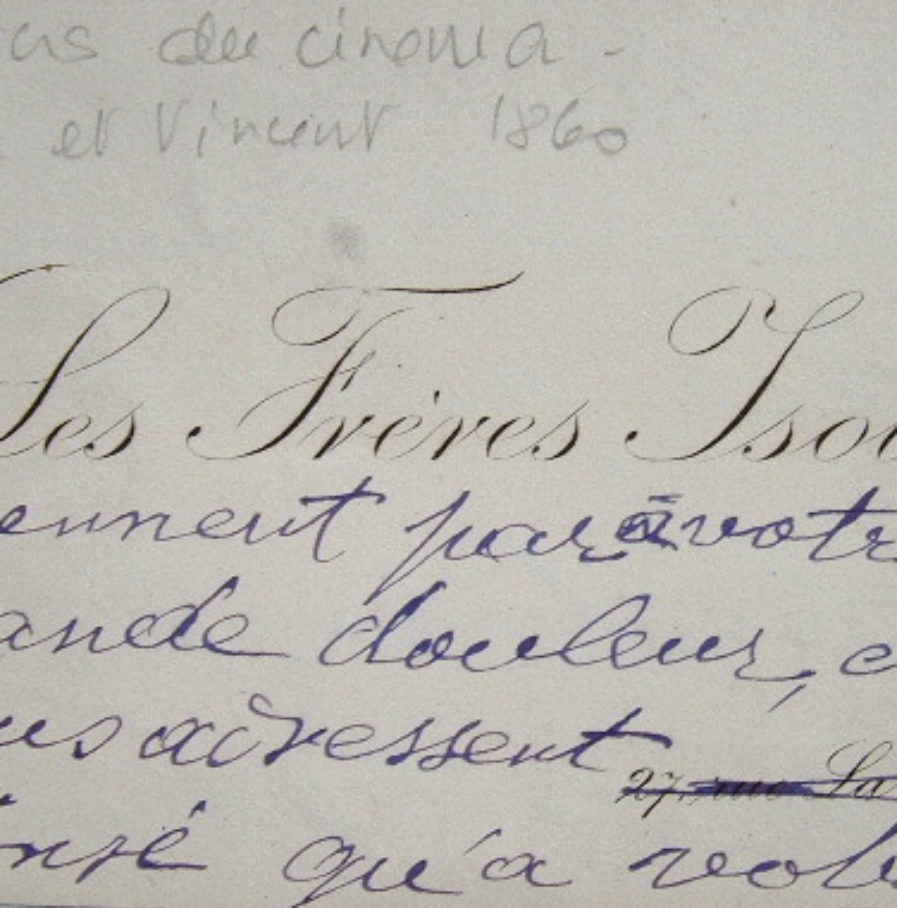 du cinema -
et Vincent 1860
Les Frères Isol
ennent par à votr
ande douleur, e
us adressent
27, rue La
qu'a vot